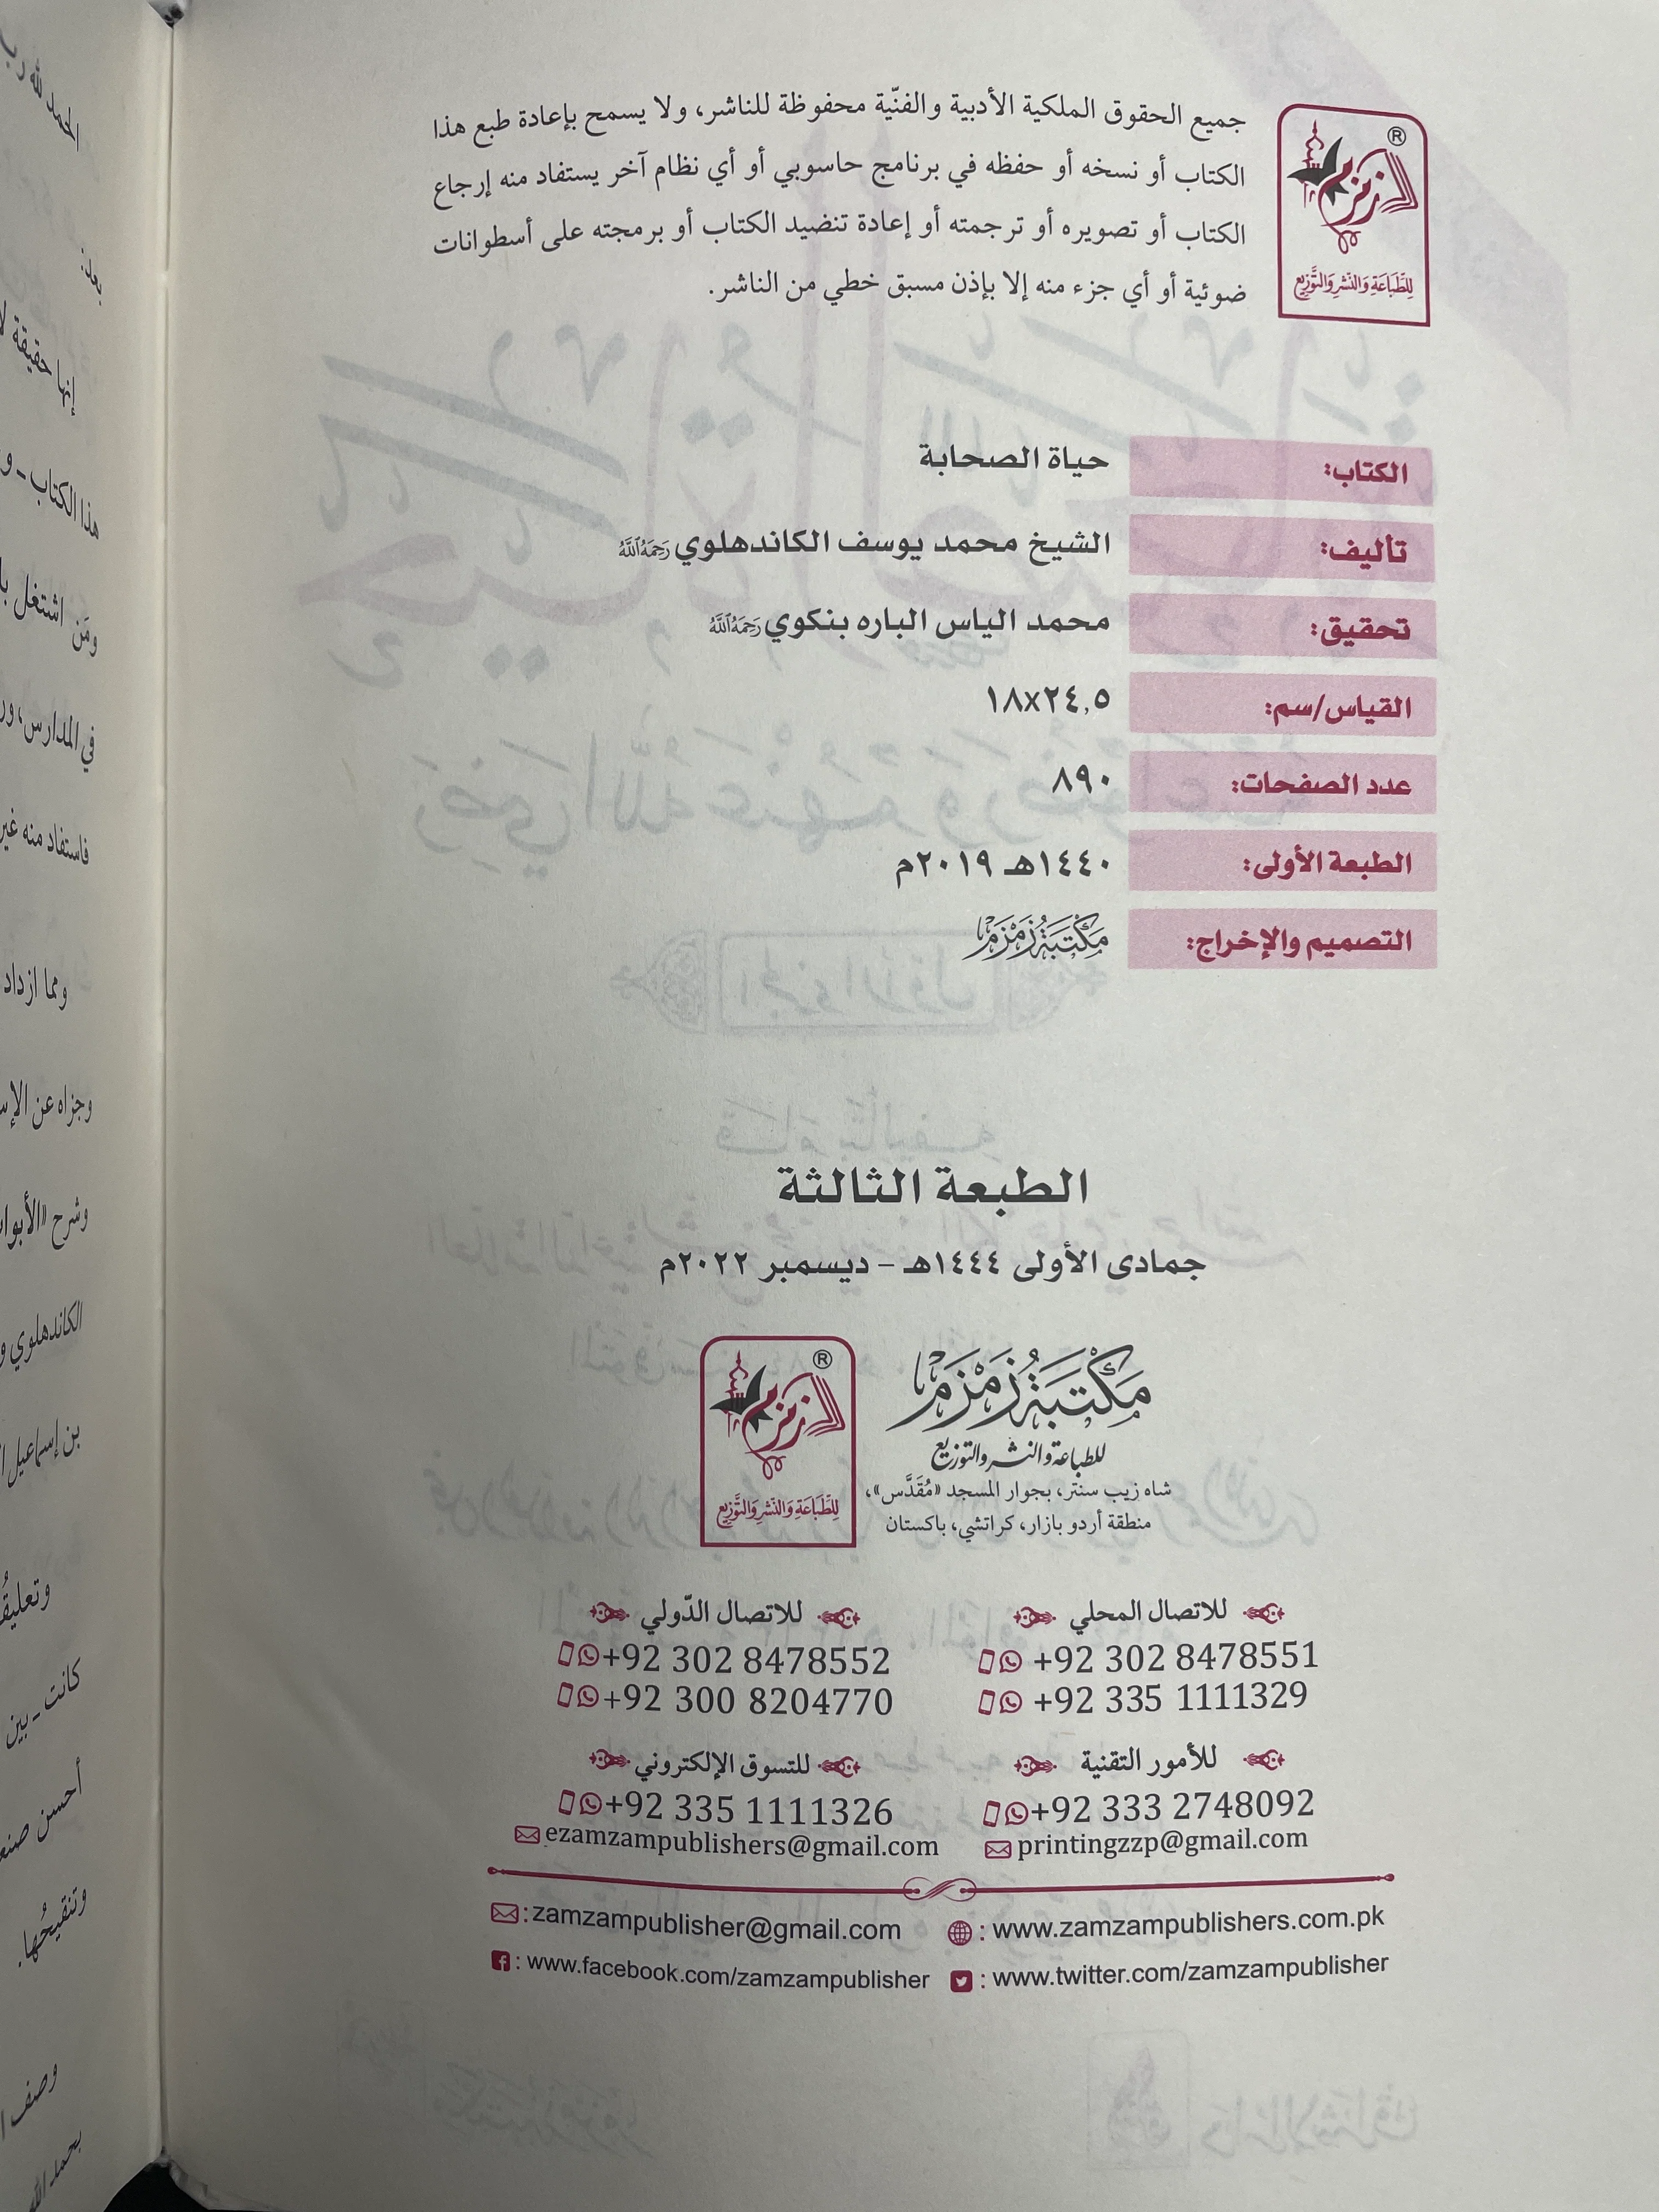 جميع الحقوق الملكية الأدبية والفنّية محفوظة للناشر، ولا يسمح بإعادة طبع هذا
الكتاب أو نسخه أو حفظه في برنامج حاسوبي أو أي نظام آخر يستفاد منه إرجاع
الكتاب أو تصويره أو ترجمته أو إعادة تنضيد الكتاب أو برمجته على أسطوانات
ضوئية أو أي جزء منه إلا بإذن مسبق خطي من الناشر.
زمزم ®
للطِّبَاعَةِ وَالنَّشرِ وَالتَّوْزِيع
الكتاب: حياة الصحابة
تأليف: الشيخ محمد يوسف الكاندهلوي رَحِمَهُ ٱللَّهُ
تحقيق: محمد الياس الباره بنكوي رَحِمَهُ ٱللَّهُ
القياس/سم: ١٨x٢٤,٥
عدد الصفحات: ٨٩٠
الطبعة الأولى: ١٤٤٠هـ ٢٠١٩م
التصميم والإخراج: مَكْتَبَةُ زَمْزَمْ
الطبعة الثالثة
جمادى الأولى ١٤٤٤هـ – ديسمبر ٢٠٢٢م
مَكْتَبَةُ زَمْزَمْ
للطباعة والنشر والتوزيع
شاه زيب سنتر، بجوار المسجد «مُقَدَّس»،
منطقة أردو بازار، كراتشي، باكستان
زمزم ®
للطِّبَاعَةِ وَالنَّشرِ وَالتَّوْزِيع
للاتصال المحلي
+92 302 8478551
+92 335 1111329
للاتصال الدّولي
+92 302 8478552
+92 300 8204770
للأمور التقنية
+92 333 2748092
printingzzp@gmail.com
للتسوق الإلكتروني
+92 335 1111326
ezamzampublishers@gmail.com
:zamzampublisher@gmail.com : www.zamzampublishers.com.pk
: www.facebook.com/zamzampublisher : www.twitter.com/zamzampublisher
إنها حقيقة
هذا الكتاب ـ
ومَن اشتغل
في المدارس،
فاستفاد منه
ومما ازداد
وجزاه عن
وشرح
الكاندهلوي
بن إسماعيل
كانت ـ بين
أحسن
وتنقيحُها.
وصف